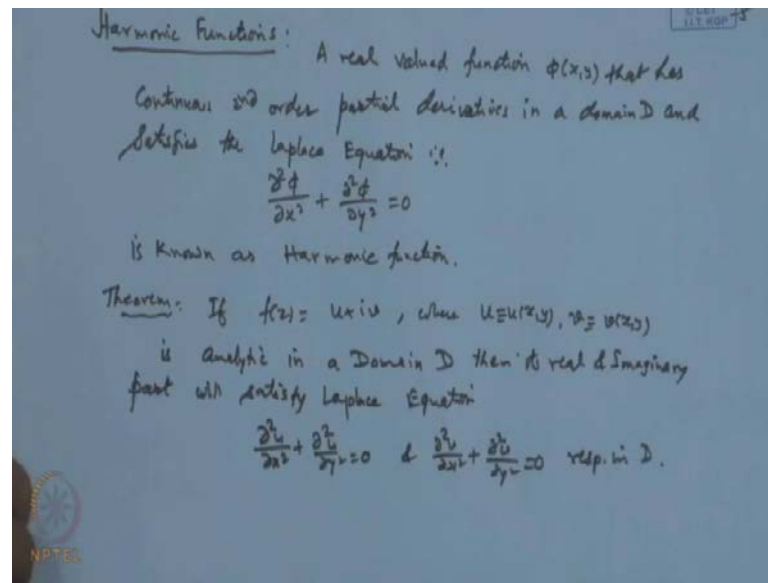 Harmonic Functions:
A real valued function φ(x,y) that has
Continuous 2nd order partial derivatives in a domain D and
Satisfies the Laplace Equation i.e.
∂²φ/∂x² + ∂²φ/∂y² = 0
is Known as Harmonic function.
Theorem: If f(z) = u+iv, where u≡u(x,y), v≡v(x,y)
is analytic in a Domain D then its real & Imaginary
part will satisfy Laplace Equation
∂²u/∂x² + ∂²u/∂y² = 0 & ∂²v/∂x² + ∂²v/∂y² = 0 resp. in D.
I.I.T. KGP
NPTEL